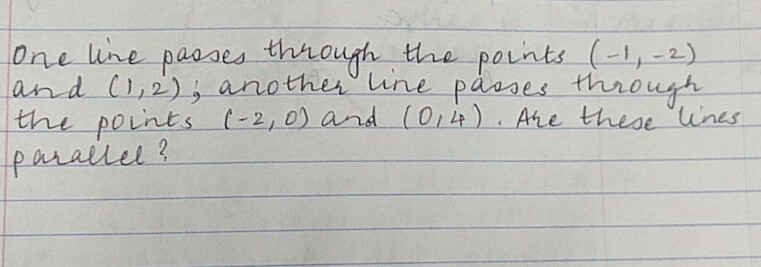 One line passes through the points (-1, -2)
and (1, 2) ; another line passes through
the points (-2, 0) and (0, 4) . Are these lines
parallel ?